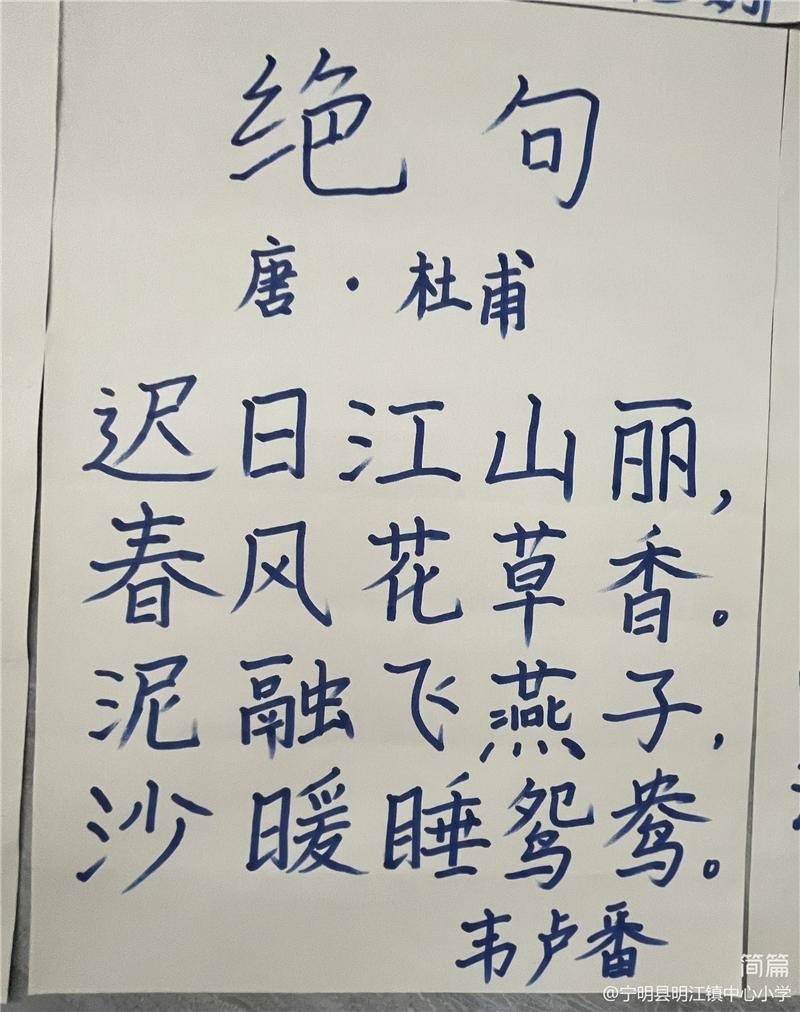 绝句
唐·杜甫
迟日江山丽，
春风花草香。
泥融飞燕子，
沙暖睡鸳鸯。
韦卢番
简篇
@宁明县明江镇中心小学